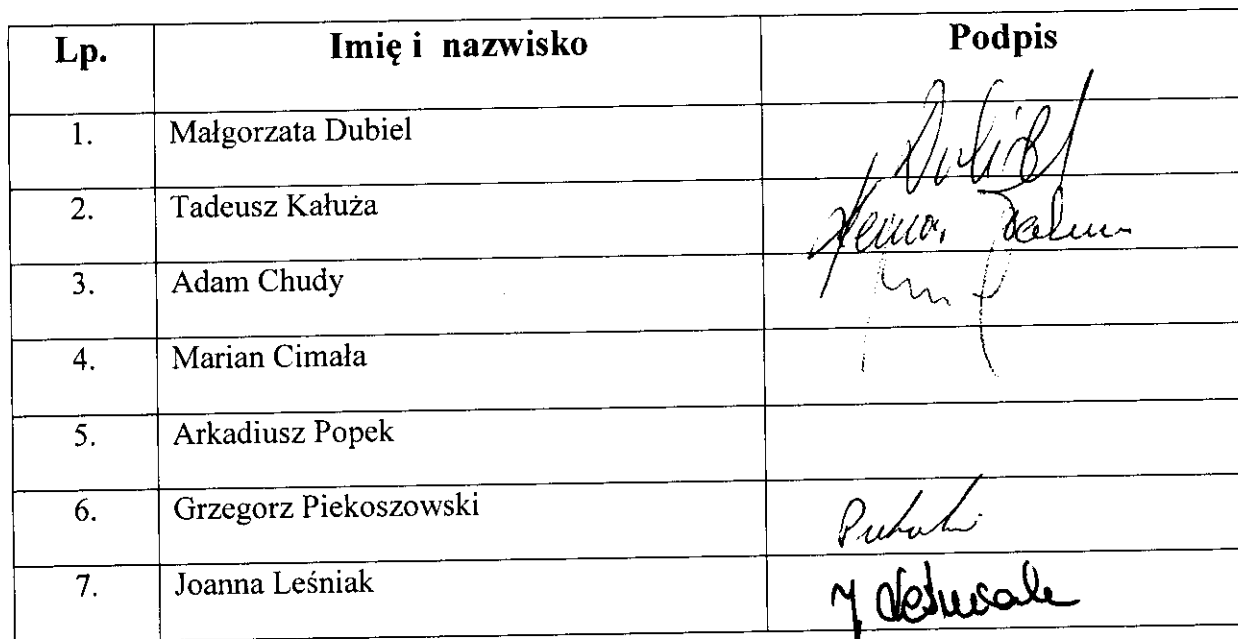 Lp. Imię i nazwisko Podpis
1. Małgorzata Dubiel Dubiel
2. Tadeusz Kałuża
3. Adam Chudy
4. Marian Cimała
5. Arkadiusz Popek
6. Grzegorz Piekoszowski
7. Joanna Leśniak J Leśniak